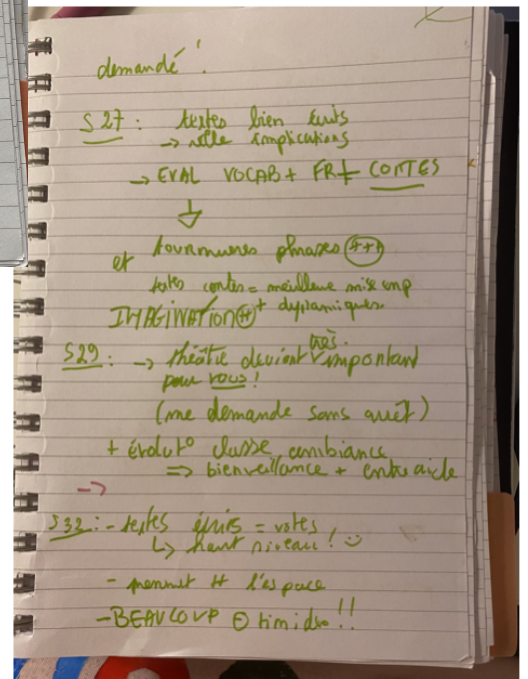 demandé !
S27 : textes bien écrits
→ réelle implications
→ EVAL VOCAB + FR + CONTES
↓
et tournures phrases (+++)
textes contes = meilleure mise en p
IMAGINATION (+) + dynamiques.
S29 : → théâtre devient très important
pour vous !
(me demande sans arrêt)
+ évolut° classe, ambiance
⇒ bienveillance + entre aide
→
S32 : - textes écrits = votes
↳ haut niveau ! :)
- prennent ++ l'espace
- BEAUCOUP ⊖ timides !!